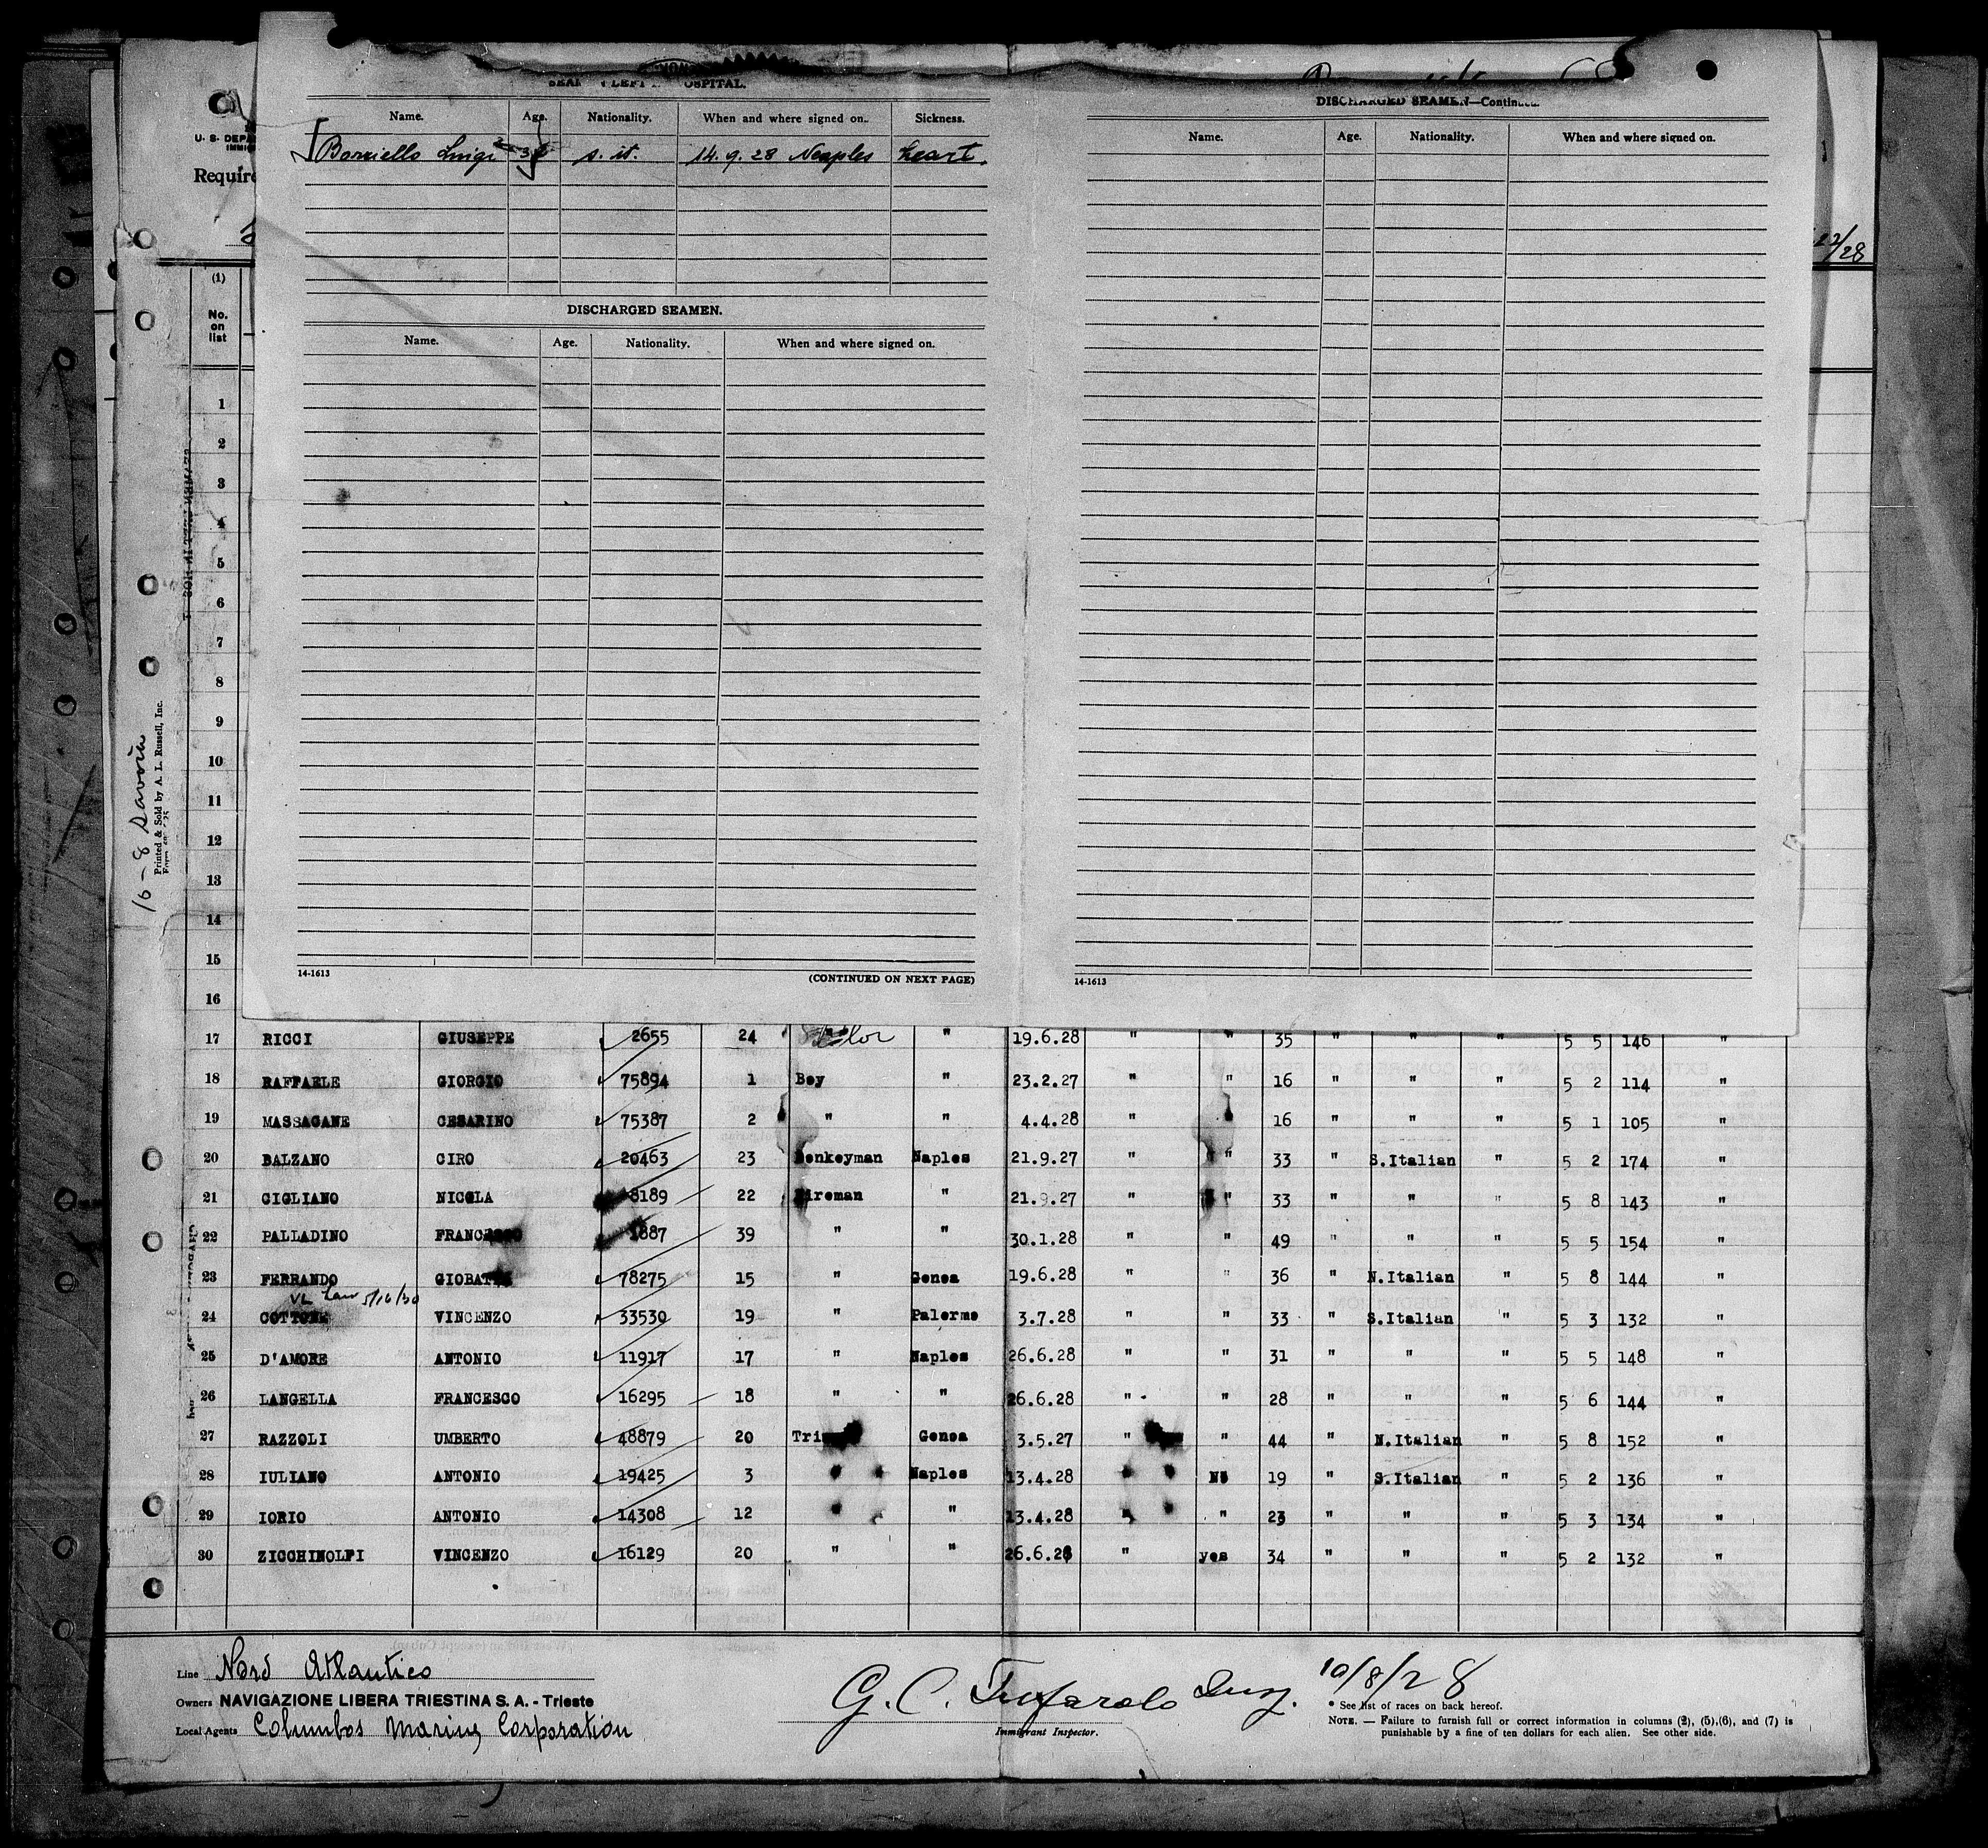 OSPITAL.
Name. Age. Nationality. When and where signed on. Sickness.
Borriello Luigi s. it. 14.9.28 Neaples heart.
DISCHARGED SEAMEN.
Name. Age. Nationality. When and where signed on.
14-1613 (CONTINUED ON NEXT PAGE)
DISCHARGED SEAMEN—Continued.
Name. Age. Nationality. When and where signed on.
14-1613
U. S. DEPA
IMMI
Require
22/28
(1)
No.
on
list
1
2
3
4
5
6
7
8
9
10
11
12
13
14
15
16
16-8 Savoia
Printed & Sold by A. L. Russell, Inc.
17 RICCI GIUSEPPE 2655 24 " 19.6.28 " " 35 " " " 5 5 146 "
18 RAFFAELE GIORGIO 75894 1 Boy " 23.2.27 " " 16 " " " 5 2 114 "
19 MASSAGANE CESARINO 75387 2 " " 4.4.28 " 16 " " " 5 1 105 "
20 BALZANO CIRO 20463 23 Donkeyman Naples 21.9.27 " " 33 " S.Italian " 5 2 174 "
21 GIGLIANO NICOLA 8189 22 Fireman " 21.9.27 " " 33 " " " 5 8 143 "
22 PALLADINO FRANCESCO 1887 39 " " 30.1.28 " " 49 " " " 5 5 154 "
23 FERRANDO GIOBATTA 78275 15 " Genoa 19.6.28 " " 36 " N.Italian " 5 8 144 "
VL 5/16/30
24 COTTONE VINCENZO 33530 19 " Palermo 3.7.28 " " 33 " S.Italian " 5 3 132 "
25 D'AMORE ANTONIO 11917 17 " Naples 26.6.28 " " 31 " " " 5 5 148 "
26 LANGELLA FRANCESCO 16295 18 " " 26.6.28 " " 28 " " " 5 6 144 "
27 RAZZOLI UMBERTO 48879 20 Genoa 3.5.27 " " 44 " N.Italian " 5 8 152 "
28 IULIANO ANTONIO 19425 3 " Naples 13.4.28 " No 19 " S.Italian " 5 2 136 "
29 IORIO ANTONIO 14308 12 " " 13.4.28 " " 23 " " " 5 3 134 "
30 ZICCHINOLFI VINCENZO 16129 20 " " 26.6.28 " yes 34 " " " 5 2 132 "
Line Nord Atlantico
Owners NAVIGAZIONE LIBERA TRIESTINA S. A. - Trieste
Local Agents Columbos Marine Corporation
G. C. Tufarolo Insp. 10/8/28
Immigrant Inspector.
* See list of races on back hereof.
NOTE. — Failure to furnish full or correct information in columns (2), (5),(6), and (7) is
punishable by a fine of ten dollars for each alien. See other side.